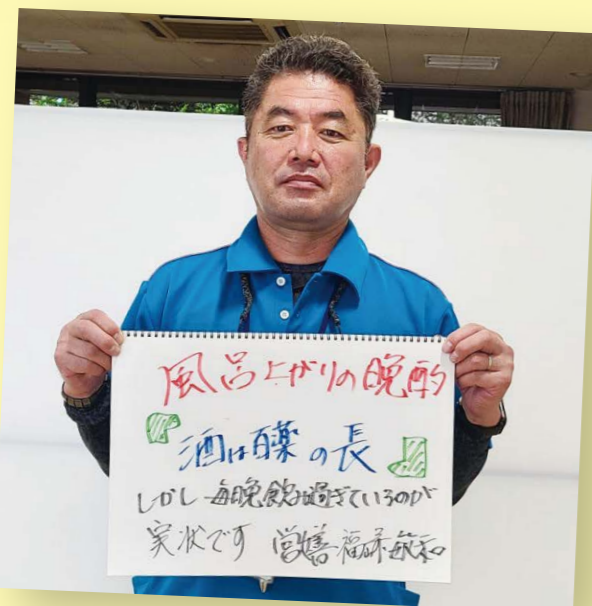 風呂上がりの晩酌
『酒は百薬の長』
しかし毎晩飲み過ぎているのが
実状です 営繕 福